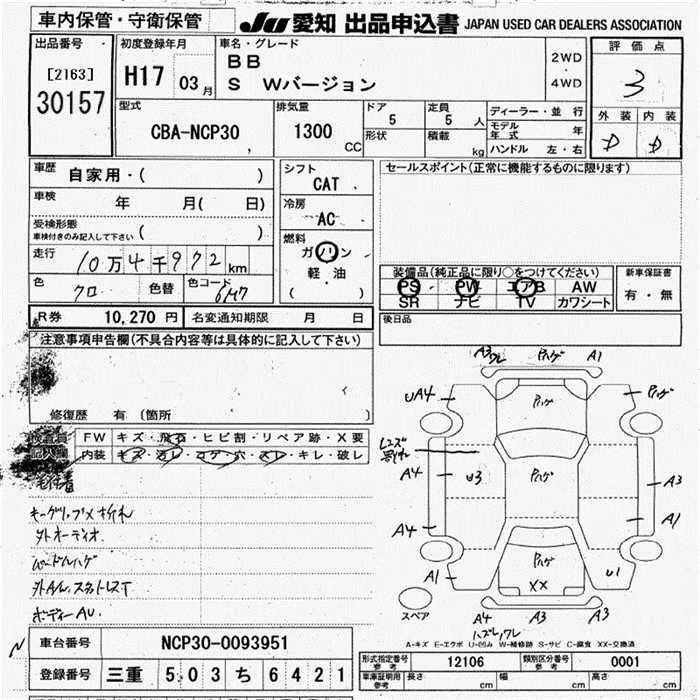 車内保管・守衛保管
JU 愛知 出品申込書 JAPAN USED CAR DEALERS ASSOCIATION
出品番号
[2163]
30157
初度登録年月
H17 03月
車名・グレード
BB
S Wバージョン
2WD
・
4WD
評価点
3
外装 内装
D D
型式
CBA-NCP30
排気量
1300
CC
ドア
5
定員
5 人
形状
積載
kg
ディーラー・並行
モデル年式 年
ハンドル 左・右
車歴 自家用・( )
車検 年 月( 日)
受検形態
車検付きのみ記入して下さい ( )
走行 10万4千972km
色 クロ 色替 色コード 6M7
シフト
CAT
冷房
AC
燃料
ガソリン
軽・油
( )
セールスポイント(正常に機能するものに限ります)
装備品(純正品に限り○をつけてください)
PS PW エアB AW
SR ナビ TV カワシート
新車保証書
有・無
R券 10,270 円 名変通知期限 月 日
後日品
注意事項申告欄(不具合内容等は具体的に記入して下さい)
修復歴 有 (箇所
検査員
記入欄
FW キズ・飛石・ヒビ割・リペア跡・X要
内装 キズ・汚レ・コゲ・穴・スレ・キレ・破レ
キーグリップメ折れ
外オーディオ
ハンドルハゲ
ボディーAU
A3ワレ Pハゲ A1
UA4 Pハゲ Pハゲ
レンズ
割れ
A4 U3 Pハゲ A3
A4 A1
A1 Pハゲ U1
XX
スペア
A4 A3 A3
ハズレ,ワレ
A-キズ E-エクボ U-凹み W-補修跡 S-サビ C-腐食 XX-交換済
N
車台番号 NCP30-0093951
登録番号 三重 503 ち 6421
型式指定番号
参考
12106
類別区分番号
参考
0001
車庫証明用
参考
長さ cm 幅 cm 高さ cm